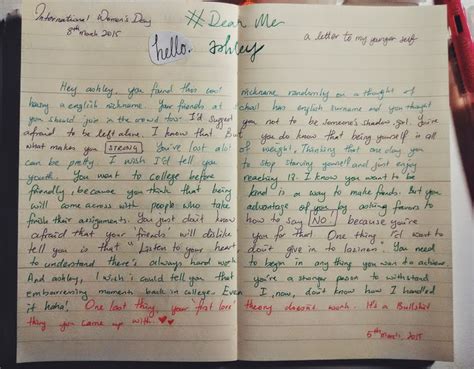 International Women's Day
8th March 2015
#Dear Me
hello. ashley
a letter to my younger self
Hey ashley, you found this cool nickname randomly on a thought of
having a english nickname. Your friends at school has english surname and you thought
you should join in the crowd too? I'd suggest you not to be someone's shadow gal. You're
afraid to be left alone. I know that. But you do know that being yourself is all
what makes you STRONG. You've lost alot of weight. Thinking that one day you
can be pretty. I wish I'd tell you to stop starving yourself and just enjoy
youth. You want to college before reaching I know you want to be
friendly, because you think that being kind is a way to make fends. But you
will come across with people who take advantage of you by asking favors to
finish their assignments. You just don't know how to say NO! because you're
afraid that your 'friends' will dislike you for that! One thing I'd want to
tell you is that "Listen to your heart don't give in to You need
to understand there's always hard work to begin in any thing you want to achieve
And ashley, I wish i could tell you that you're a stronger person to withstand
Embarrassing moments back in college. Even I, now, don't know how I handled
it haha! One last thing, your 'first love' theory doesn't work. It's a Bullshit
thing you came up with! ♥♥
5th March, 2015